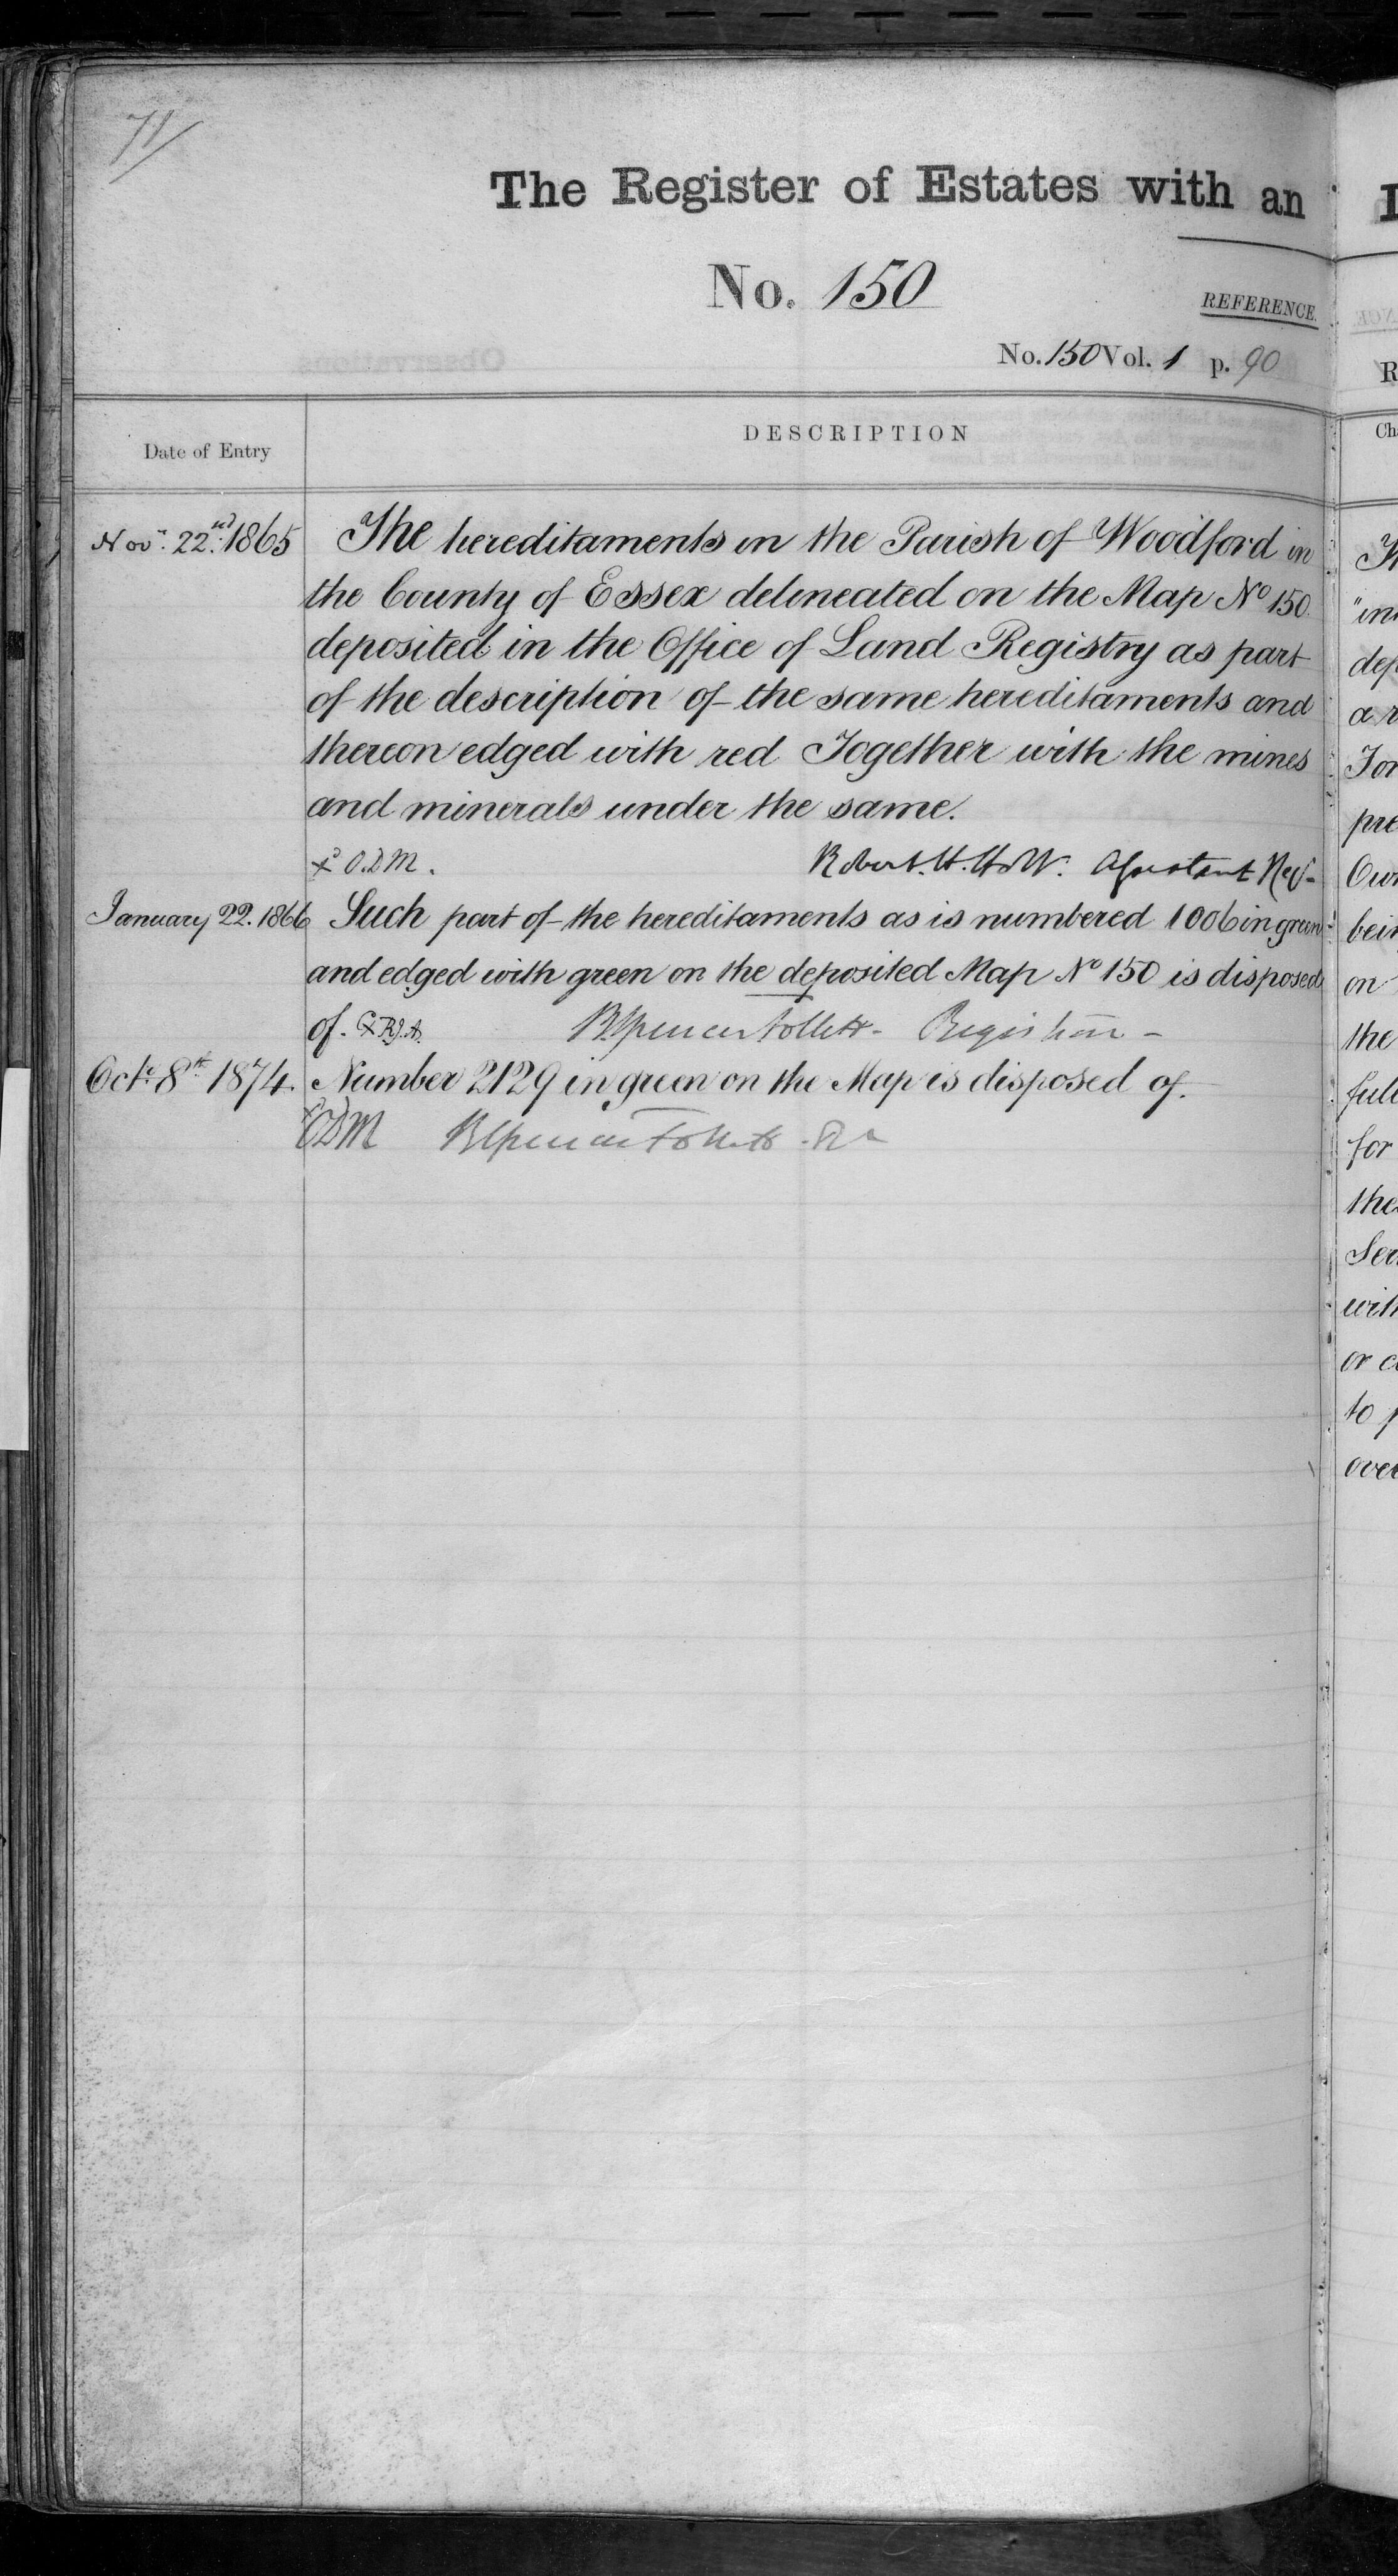 71/
The Register of Estates with an
No. 150
REFERENCE.
No. 150 Vol. 1 p. 90
Date of Entry
DESCRIPTION
Nov.r 22.nd 1865 The hereditaments in the Parish of Woodford in
the County of Essex delineated on the Map No 150
deposited in the Office of Land Registry as part
of the description of the same hereditaments and
thereon edged with red Together with the mines
and minerals under the same.
O.D.M. Robert. H. Holt. Assistant Reg
January 22. 1866 Such part of the hereditaments as is numbered 1006 in green
and edged with green on the deposited Map No 150 is disposed
of. Brent Spencer Follett - Registrar -
Octr 8th 1874. Number 2129 in green on the Map is disposed of.
ODM B Spencer Follett
Ch
dep
For
pre
Own
bein
on
the
full
for
with
to p
over